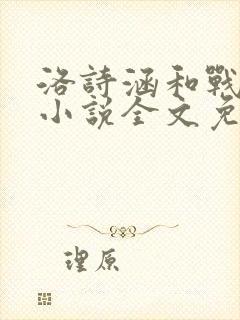 洛詩涵和戰
小說全文免
理原